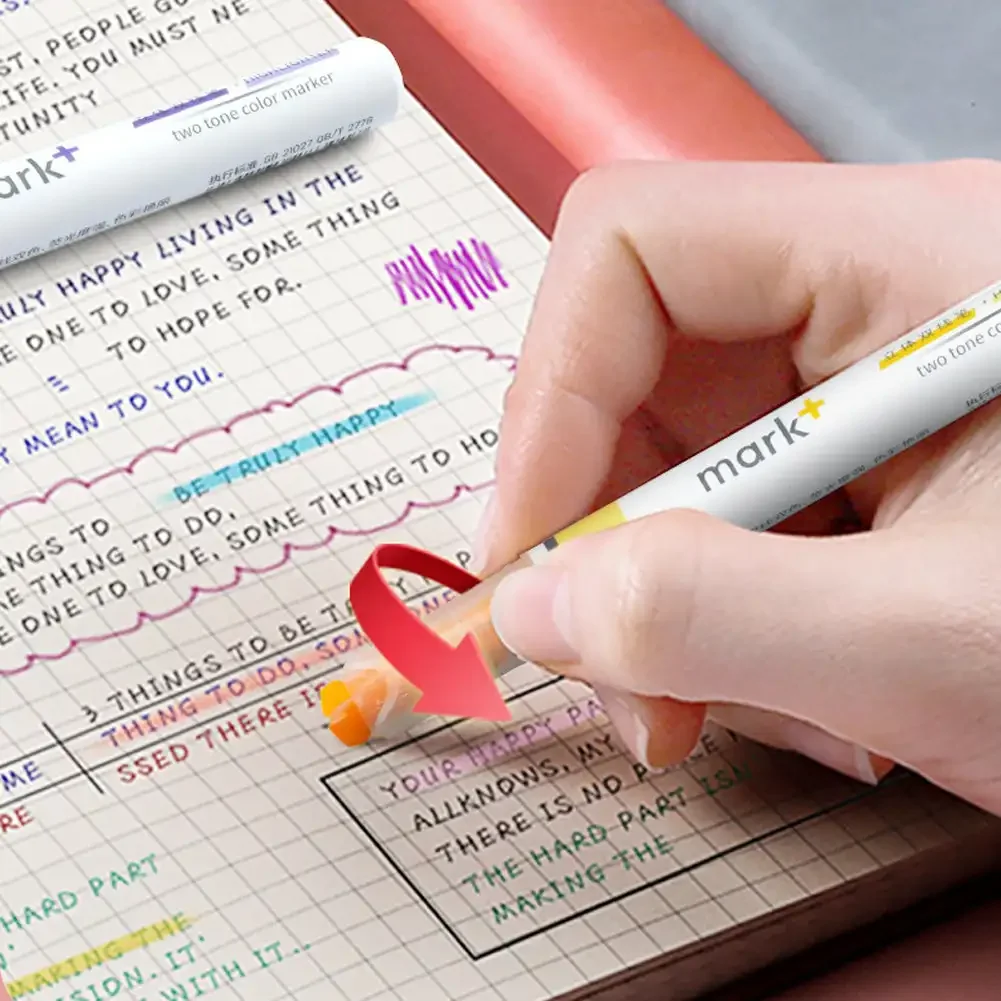 ST, PEOPLE GO
LIFE. YOU MUST NE
TUNITY
two tone color marker
ark+
执行标准 GB 21027 QB/T 2778
ULY HAPPY LIVING IN THE
E ONE TO LOVE, SOME THING
TO HOPE FOR.
Y MEAN TO YOU.
BE TRULY HAPPY
NGS TO
E THING TO DO,
E ONE TO LOVE, SOME THING TO HO
立体双线笔
two tone co
mark+
3 THINGS TO BE TRULY HAPP
THING TO DO, SOM ONE
SSED THERE IS
ME
RE
YOUR HAPPY PA
ALLKNOWS, MY
THERE IS NO
THE HARD PART ISN
MAKING THE
HARD PART
MAKING THE
SION. IT'
WITH IT..